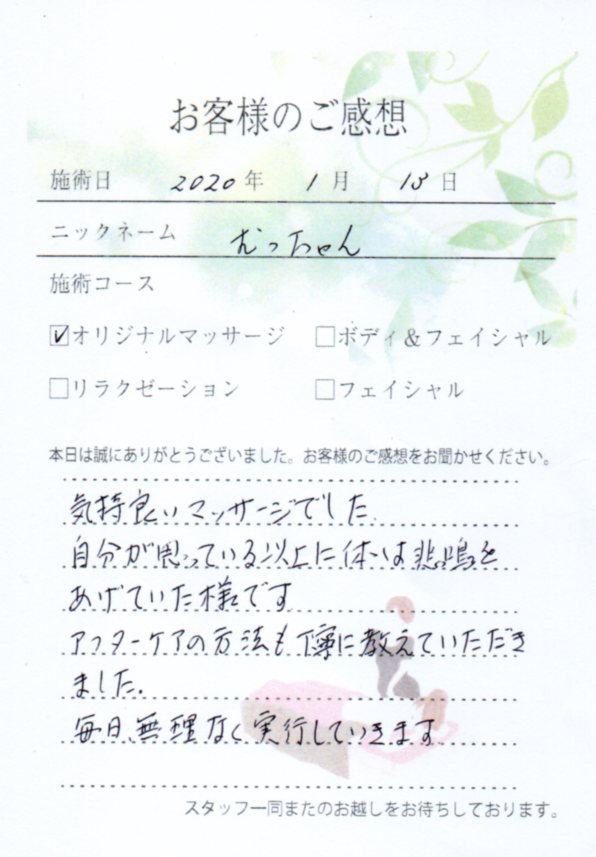 お客様のご感想
施術日 2020年 1月 13日
ニックネーム むっちゃん
施術コース
☑オリジナルマッサージ □ボディ＆フェイシャル
□リラクゼーション □フェイシャル
本日は誠にありがとうございました。お客様のご感想をお聞かせください。
気持良いマッサージでした.
自分が思っている以上に体は悲鳴を
あげていた様です
アフターケアの方法も丁寧に教えていただき
ました.
毎日、無理なく実行していきます
スタッフ一同またのお越しをお待ちしております。